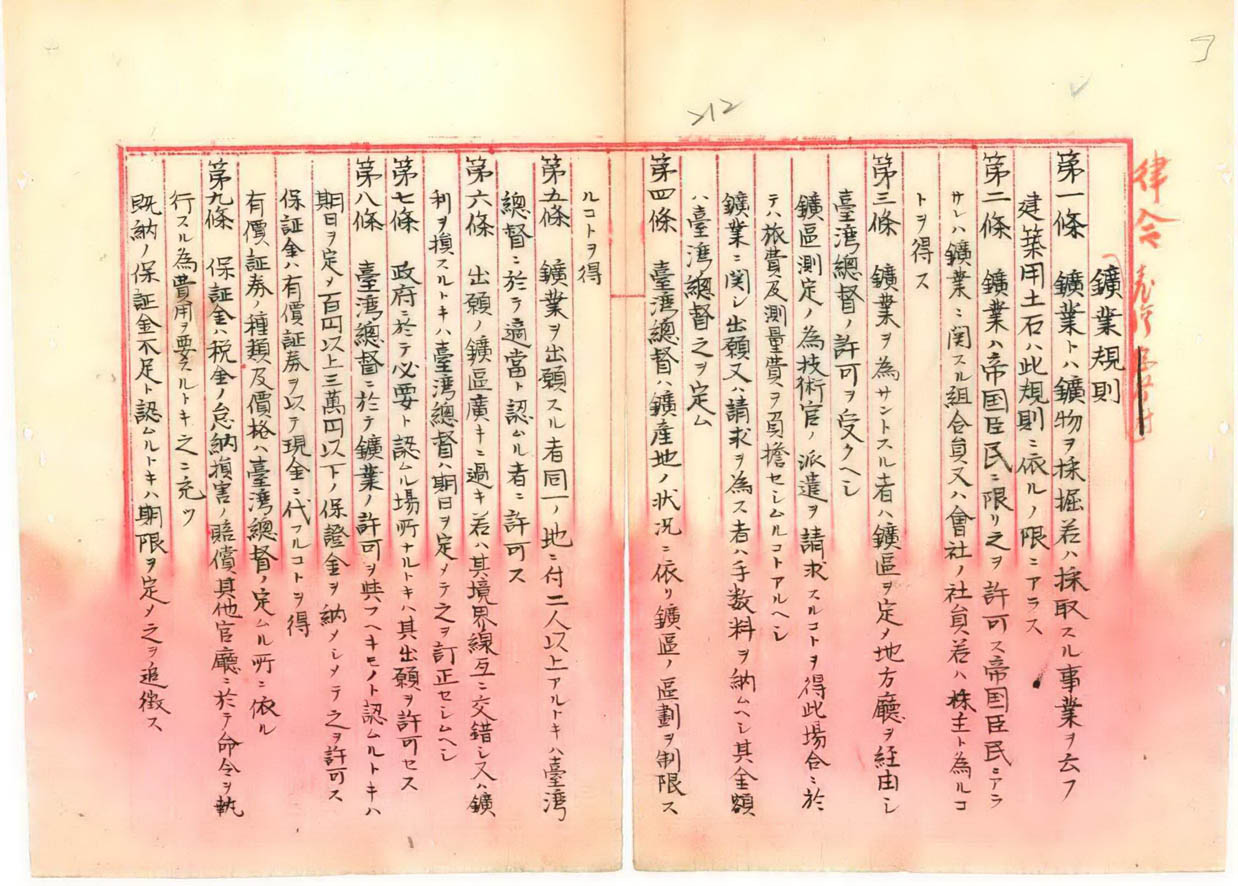 律令
鑛業規則
第一條　鑛業トハ鑛物ヲ採掘若ハ採取スル事業ヲ云フ
建築用土石ハ此規則ニ依ルノ限ニアラス
第二條　鑛業ハ帝国臣民ニ限リ之ヲ許可ス帝国臣民ニアラ
サレハ鑛業ニ関スル組合員又ハ會社ノ社員若ハ株主ト為ルコ
トヲ得ス
第三條　鑛業ヲ為サントスル者ハ鑛區ヲ定メ地方廳ヲ経由シ
臺湾總督ノ許可ヲ受クヘシ
鑛區測定ノ為技術官ノ派遣ヲ請求スルコトヲ得此場合ニ於
テハ旅費及測量費ヲ負擔セシムルコトアルヘシ
鑛業ニ関シ出願又ハ請求ヲ為ス者ハ手数料ヲ納ムヘシ其金額
ハ臺湾總督之ヲ定ム
第四條　臺湾總督ハ鑛産地ノ状况ニ依リ鑛區ノ區劃ヲ制限ス
ルコトヲ得
第五條　鑛業ヲ出願スル者同一ノ地ニ付二人以上アルトキハ臺湾
總督ニ於テ適當ト認ムル者ニ許可ス
第六條　出願ノ鑛區廣キニ過キ若ハ其境界線互ニ交錯シ又ハ鑛
利ヲ損スルトキハ臺湾總督ハ期日ヲ定メテ之ヲ訂正セシムヘシ
第七條　政府ニ於テ必要ト認ムル場所ナルトキハ其出願ヲ許可セス
第八條　臺湾總督ニ於テ鑛業ノ許可ヲ與フヘキモノト認ムルトキハ
期日ヲ定メ百円以上三萬円以下ノ保證金ヲ納メシメテ之ヲ許可ス
保証金ハ有價証券ヲ以テ現金ニ代フルコトヲ得
有價証券ノ種類及價格ハ臺湾總督ノ定ムル所ニ依ル
第九條　保証金ハ税金ノ怠納損害ノ賠償其他官廳ニ於テ命令ヲ執
行スル為費用ヲ要スルトキ之ニ充ツ
既納ノ保証金不足ト認ムルトキハ期限ヲ定メ之ヲ追徴ス